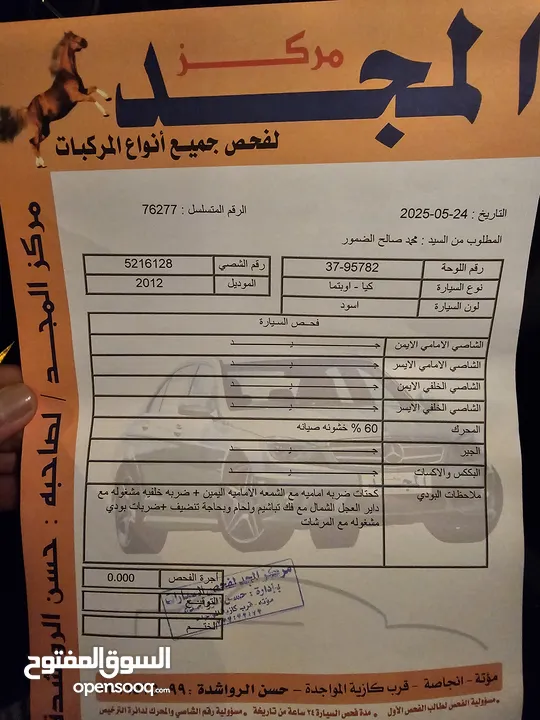 مركز
المجد
لفحص جميع أنواع المركبات
التاريخ : 24-05-2025
الرقم المتسلسل : 76277
المطلوب من السيد : محمد صالح الضمور
رقم اللوحة 37-95782
رقم الشصي 5216128
نوع السيارة كيا - اوبتما
الموديل 2012
لون السيارة اسود
فحص السيارة
الشاصي الامامي الايمن جيد
الشاصي الامامي الايسر جيد
الشاصي الخلفي الايمن جيد
الشاصي الخلفي الايسر جيد
المحرك 60 % خشونه صيانه
الجير جيد
البككس والاكسات جيد
ملاحظات البودي كحتات ضربه اماميه مع الشمعه الاماميه اليمين + ضربه خلفيه مشغوله مع
داير العجل الشمال مع فك تباشيم ولحام وبحاجة تنضيف +ضربات بودي
مشغوله مع المرشات
أجرة الفحص 0.000
التوقيع
الختم
مركز المجد لفحص السيارات
بإدارة : حسن
مؤته - قرب كازية
مركز المجد / لصاحبه : حسن الرواشدة
مؤتة - انجاصة - قرب كازية المواجدة - حسن الرواشدة : 099
مسؤولية الفحص لطالب الفحص الأول - مدة فحص السيارة ٢٤ ساعة من تاريخة - مسؤولية رقم الشاصي والمحرك لدائرة الترخيص
السوق المفتوح
opensooq.com